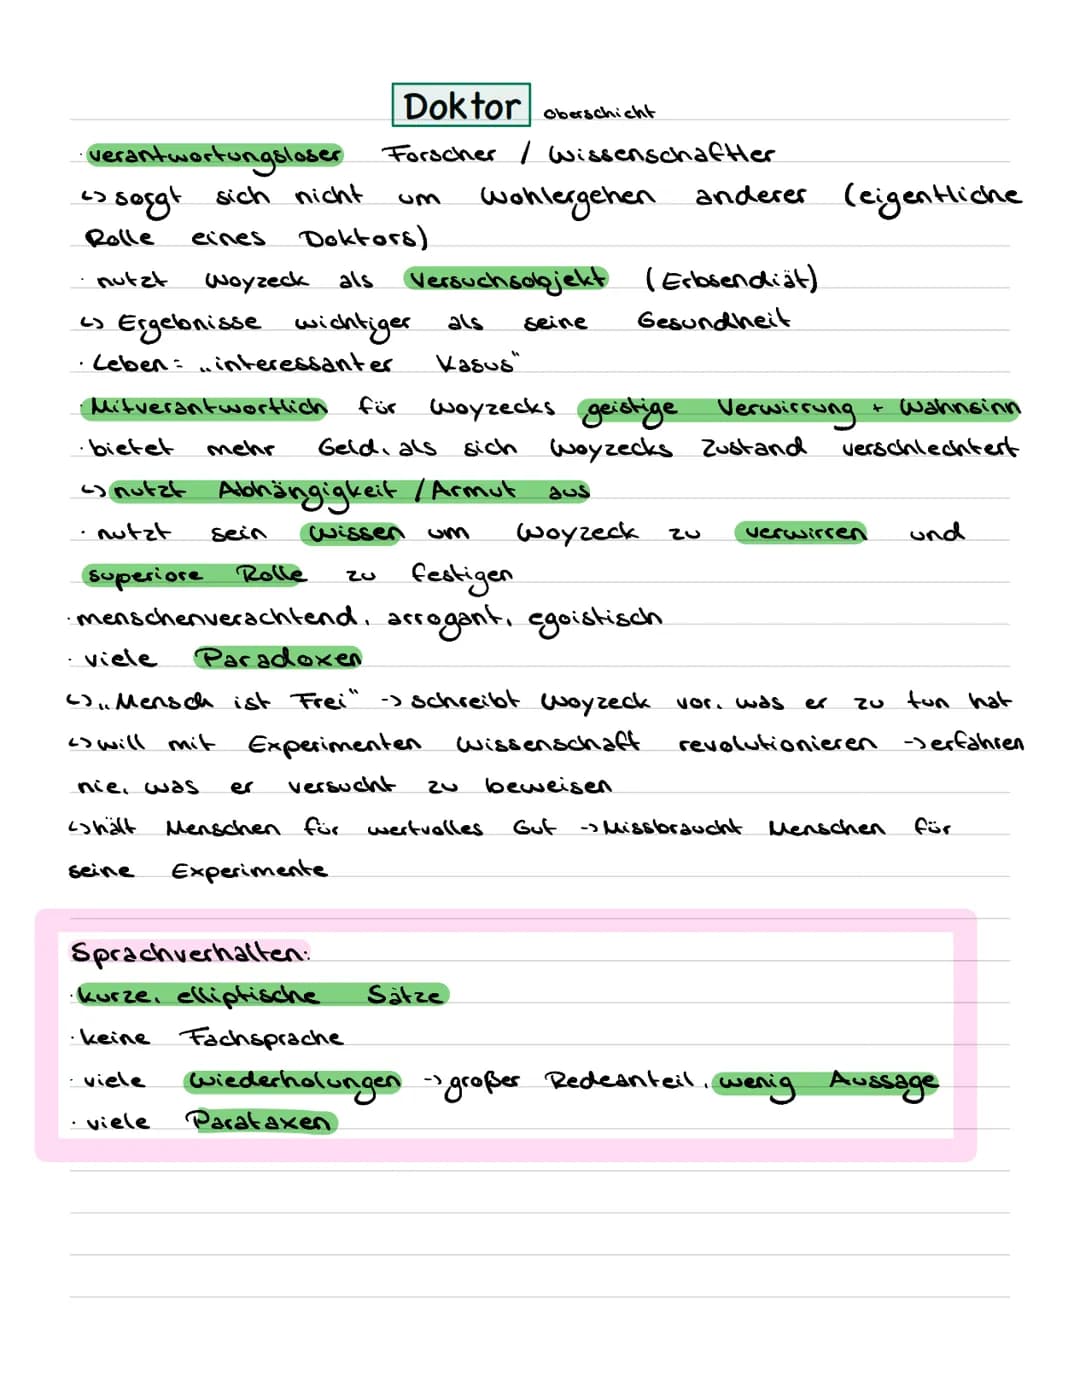 Doktor Oberschicht
· verantwortungsloser Forscher / Wissenschaftler
↳ sorgt sich nicht um Wohlergehen anderer (eigentliche
Rolle eines Doktors)
· nutzt Woyzeck als Versuchsobjekt (Erbsendiät)
↳ Ergebnisse wichtiger als seine Gesundheit
· Leben = „interessanter Kasus“
· Mitverantwortlich für Woyzecks geistige Verwirrung + Wahnsinn
· bietet mehr Geld, als sich Woyzecks Zustand verschlechtert
↳ nutzt Abhängigkeit / Armut aus
· nutzt sein Wissen um Woyzeck zu verwirren und
superiore Rolle zu festigen
· menschenverachtend, arrogant, egoistisch
· viele Paradoxen
↳ „Mensch ist Frei“ -> schreibt Woyzeck vor, was er zu tun hat
↳ will mit Experimenten Wissenschaft revolutionieren -> erfahren
nie, was er versucht zu beweisen
↳ hält Menschen für wertvolles Gut -> Missbraucht Menschen für
seine Experimente
Sprachverhalten:
· kurze, elliptische Sätze
· keine Fachsprache
· viele Wiederholungen -> großer Redeanteil, wenig Aussage
· viele Parataxen